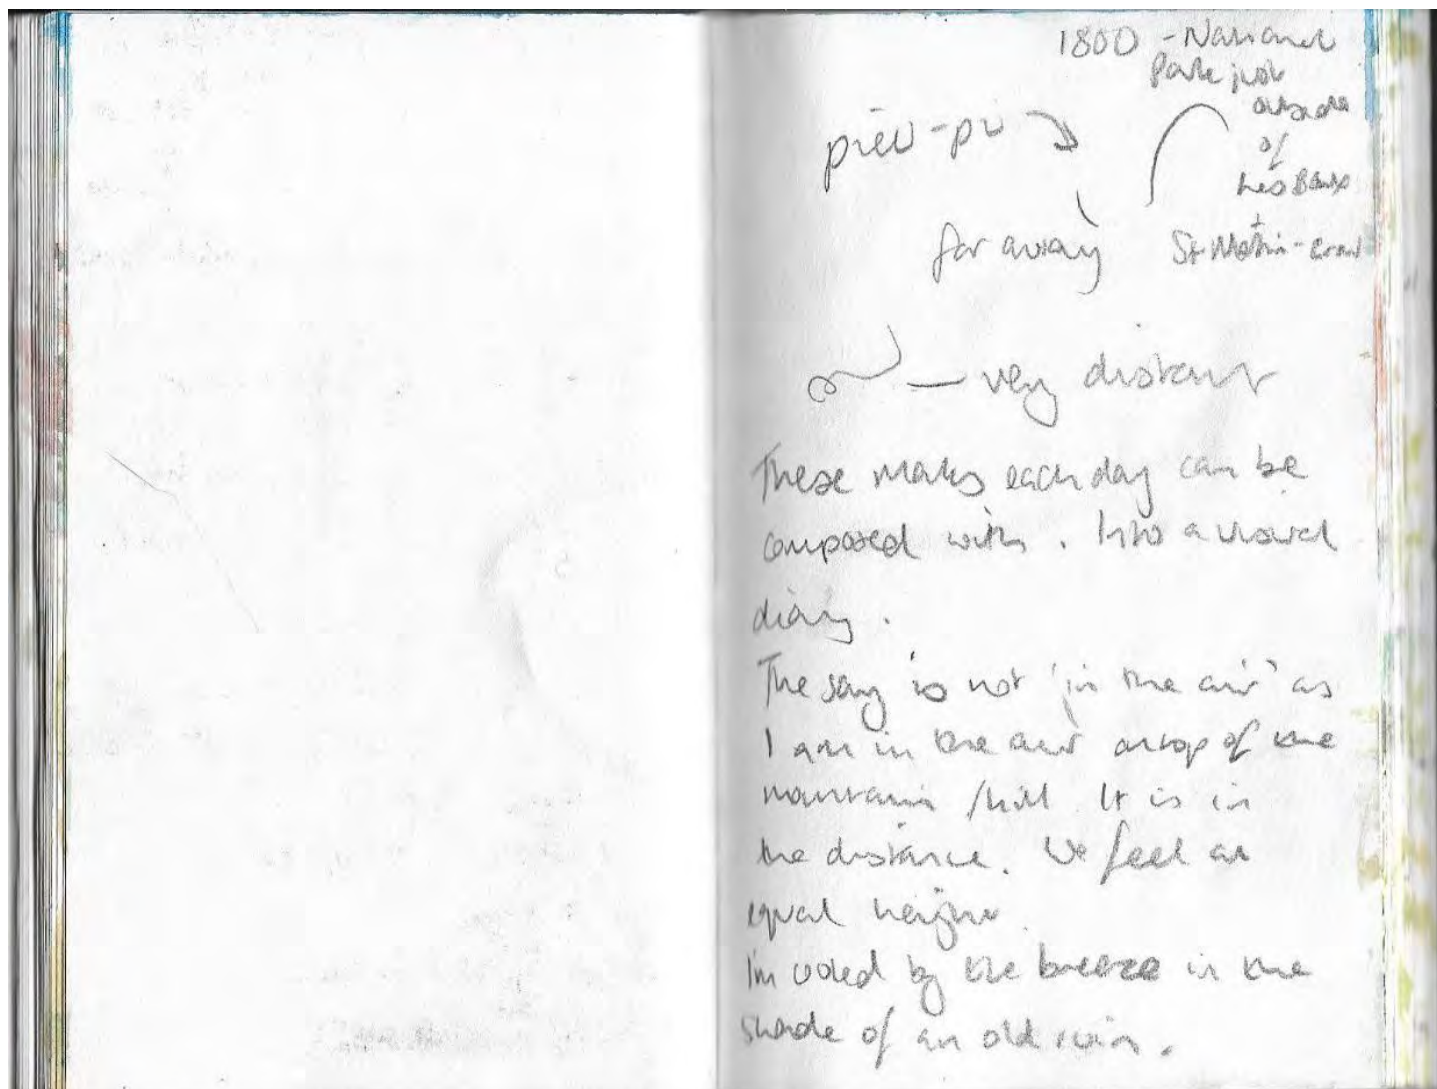 1800 - National
Park just
outside
of
Les Baux
+
St Martin-Crau
piéu-piu
far away
very distant
These marks each day can be
composed with. Into a visual
diary.
The song is not 'in the air' as
I am in the air atop of the
mountain / hill. It is in
the distance. We feel at
equal height.
I'm cooled by the breeze in the
shade of an old ruin.